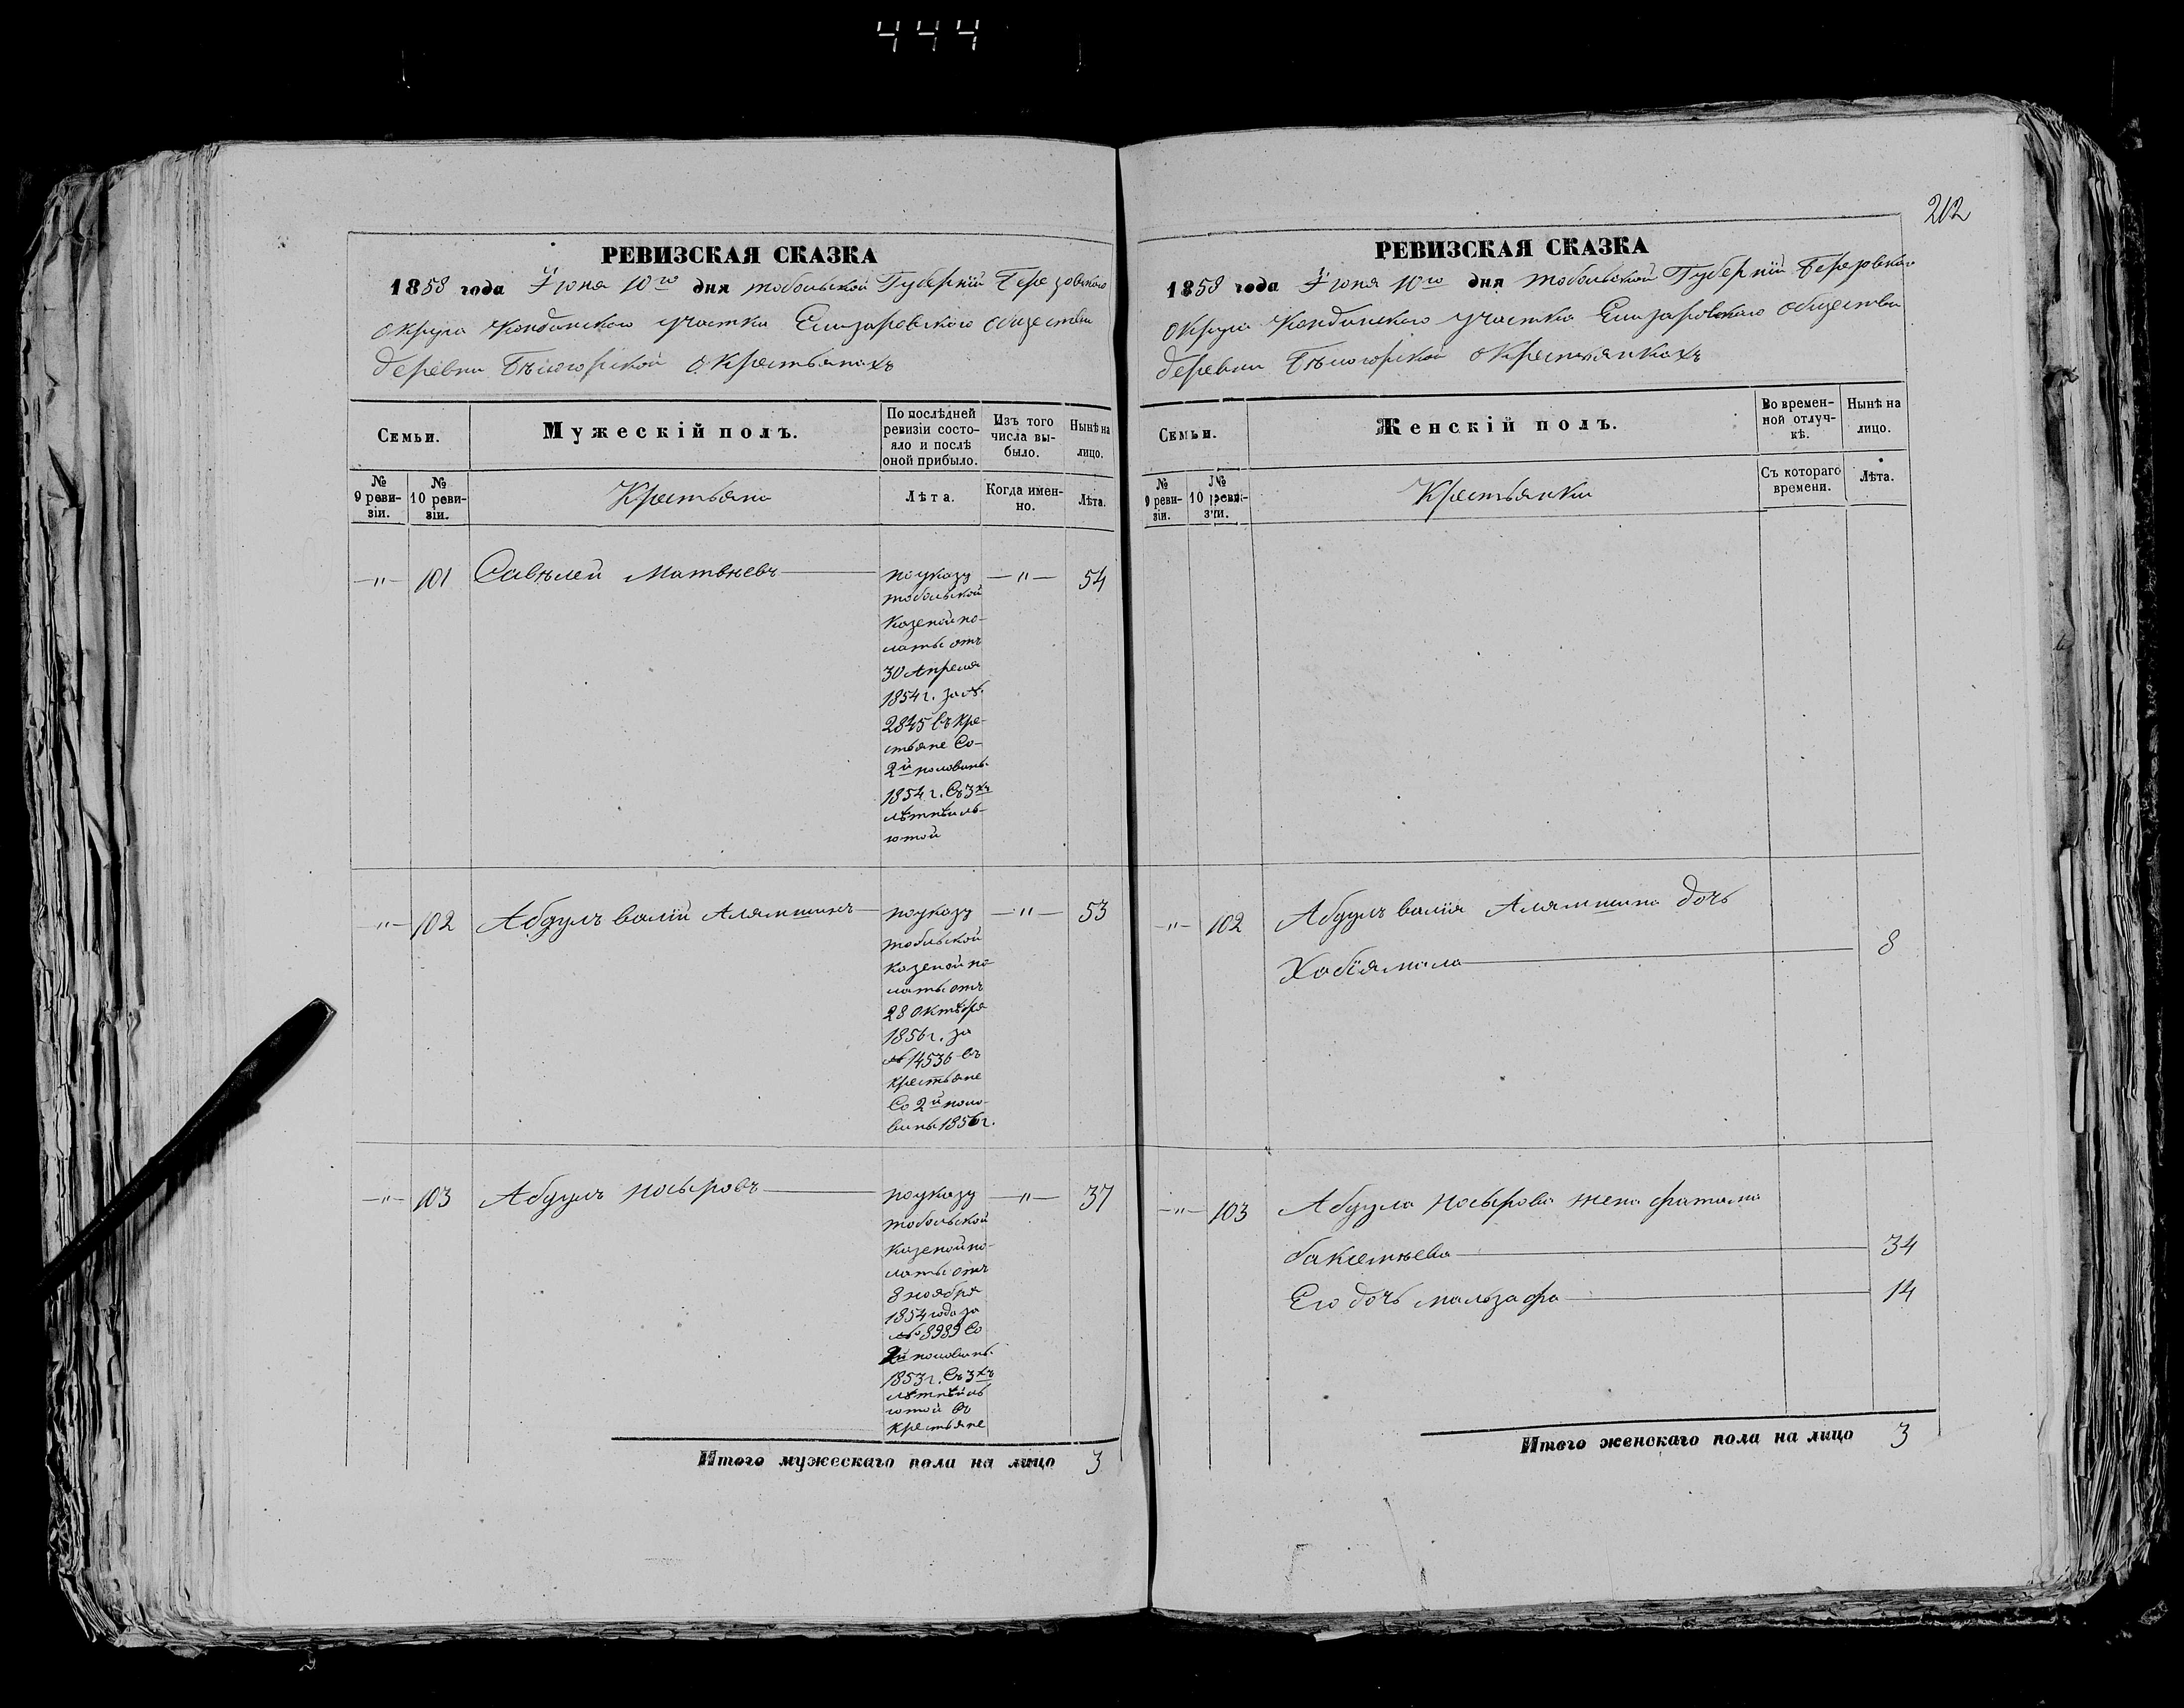 444
212
РЕВИЗСКАЯ СКАЗКА
1858 года Іюня 10го дня Тобольской Губерніи Березовского
округа Кондинского участка Елизаровского общества
деревни Бѣлогорской о крестьянахъ
Семьи.
Мужескій полъ.
По послѣдней
ревизіи состо-
яло и послѣ
оной прибыло.
Изъ того
числа вы-
было.
Нынѣ на
лицо.
№
9 реви-
зіи.
№
10 реви-
зіи.
Крестьяна
Лѣта.
Когда имен-
но.
Лѣта.
—"— 101 Савѣлей Матвѣевъ —"— 54
по указу
тобольской
Казеной по-
латы отъ
30 Апреля
1854 г. за №
2845 въ кре-
стьяне Со-
2й половины
1854 г. Съ 3хъ
лѣтнѣй ль-
готой
—"— 102 Абдулъ валій Алямшинъ —"— 53
по указу
тобольской
казеной по-
латы отъ
28 октебря
1856 г. за
№ 14536 въ
крестьяне
Со 2й поло-
вины 1856 г.
—"— 103 Абдулъ Носыровъ —"— 37
по указу
тобольской
Казеной по-
латы отъ
8 ноября
1854 года за
№ 8989 Со
2й половины
1853 г. Съ 3хъ
лѣтнѣй ль
готой въ
крестьяне
Итого мужескаго пола на лицо 3
РЕВИЗСКАЯ СКАЗКА
1858 года Іюня 10го дня Тобольской Губерніи Березовского
округа Кондинского участка Елизаровского общества
деревни Бѣлогорской о крестьянкахъ
Семьи.
Женскій полъ.
Во времен-
ной отлуч-
кѣ.
Нынѣ на
лицо.
№
9 реви-
зіи.
№
10 реви-
зіи.
Крестьянки
Съ котораго
времени.
Лѣта.
—"— 102 Абдулъ валія Алямшина дочь
Хабіямала 8
—"— 103 Абдула Носырова жена фатама
бакметьева 34
Его дочь мальзафа 14
Итого женскаго пола на лицо 3